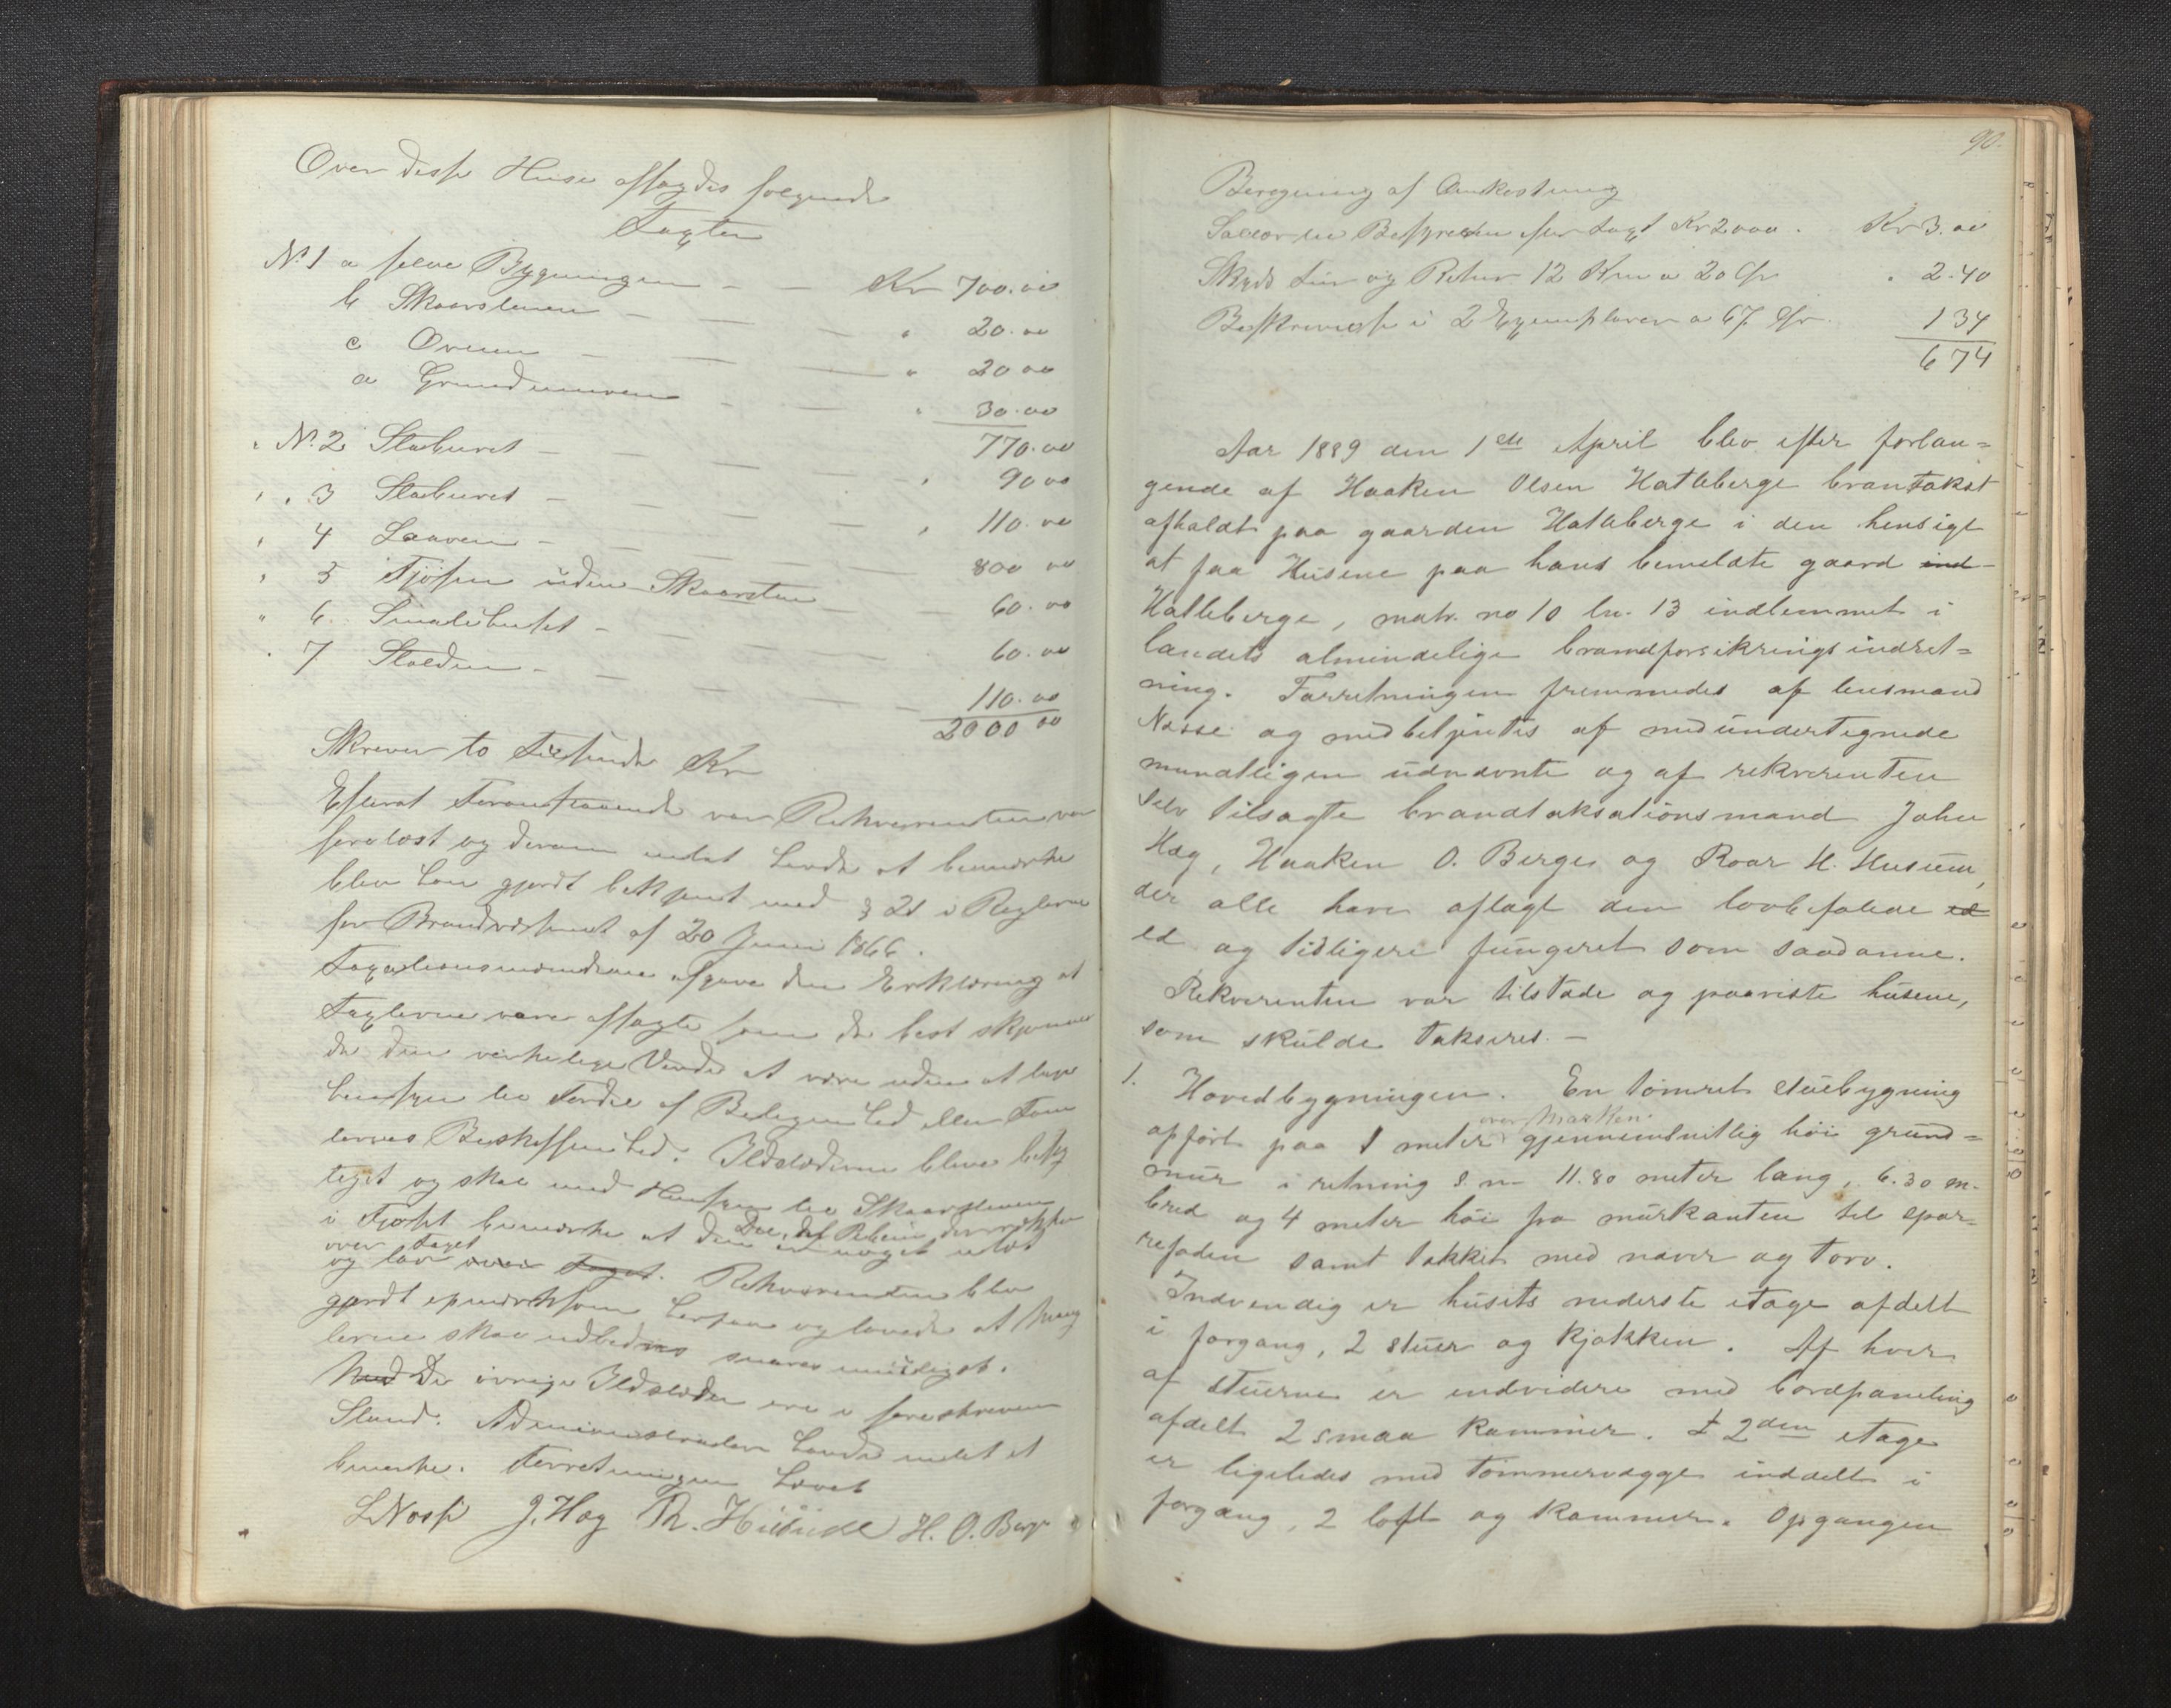 Over disse Huse afsagdes følgende
Taxter
No 1 a selve Bygningen — — Kr 700.00
b Skaarstenen — — — " 20.00
c Ovnen — — — " 20 00
d Grundmuren — — " 30.00
770.00
" No 2 Staburet — — — " 90 00
" " 3 Staburet — — — " 110.00
" 4 Laaven — — — 800 00
" 5 Fjøsen uden Skaarsten — — 60.00
" 6 Smalehuset — — — 60.00
" 7 Stalden — — — 110.00
2000 00
Skriver to Tusinde Kr
Efterat Foranstaaende var Rekvirenten
forelæst og derom intet havde at bemærke
blev han gjordt bekjent med § 21 i Reglerne
for Brandvæsenet af 20 Juni 1866.
Taxationsmændene afgave den Erklæring at
Taxterne vare afsagte som de best skjønner
de den virkelige Værdi at være uden at tage
Hensyn til Fordel af Beliggenhed eller Tom
ternes Beskaffenhed. Ildstæderne bleve besig
tiget og skal med Hensyn til Skaarstenen
i Fjøset bemærke at den er noget utæt
over Taget
og lav over Taget. Rekvirenten blev
gjordt opmærksom herpaa og lovede at Mang
lerne skal udbedres snarest muligst.
Med De øvrige Ildstæder ere i foreskreven
Stand. Administrator havde intet at
bemærke. Forretningen hævet
L Nossi J. Hæg R. Husum H. O. Berge
90.
Beregning af Omkostning
Salær til Bestyrelsen for Taxt Kr 2000. Kr 3.00
Skyds Frem og Retur 12 Km a 20 Ør " 2.40
Beskrivelse i 2 Exemplarer a 67 Ør 1 34
6 74
Aar 1889 den 1ste April blev efter forlan=
gende af Haaken Olsen Hatleberge brantakst
afholdt paa gaarden Hatleberge i den hensigt
at faa Husene paa hans bemeldte gaard ind-
Hatleberge, matr. no 10 bn. 13 indlemmet i
landets almindelige brandforsikringsindret=
ning. Forretningen fremmedes af lensmand
Nosse og medbetjentes af medundertegnede
mundtligen udnævnte og af rekvirenten
selv tilsagte brandtaksationsmænd John
Hæg, Haaken O. Berge og Roar H. Husum,
der alle have aflagt den lovbefalede ed
ed og tidligere fungeret som saadanne.
Rekvirenten var tilstæde og paaviste husene,
som skulde takseres. —
1. Hovedbygningen. En tømret stuebygning
over Marken
opført paa 1 meter gjennemsnitlig høi grund=
mur i retning S. n 11.80 meter lang, 6.30 m.
bred og 4 meter høi fra murkanten til spær=
refoden samt tækket med næver og torv.
Indvendig er husets nederste etage afdelt
i forgang, 2 stuer og kjøkken. Af hver
af stuerne er endvidere med bordpaneling
afdelt 2 smaa kammer. I 2den etage
er ligeledes med tømmervægge inddelt i
forgang, 2 loft og kammer. Opgangen